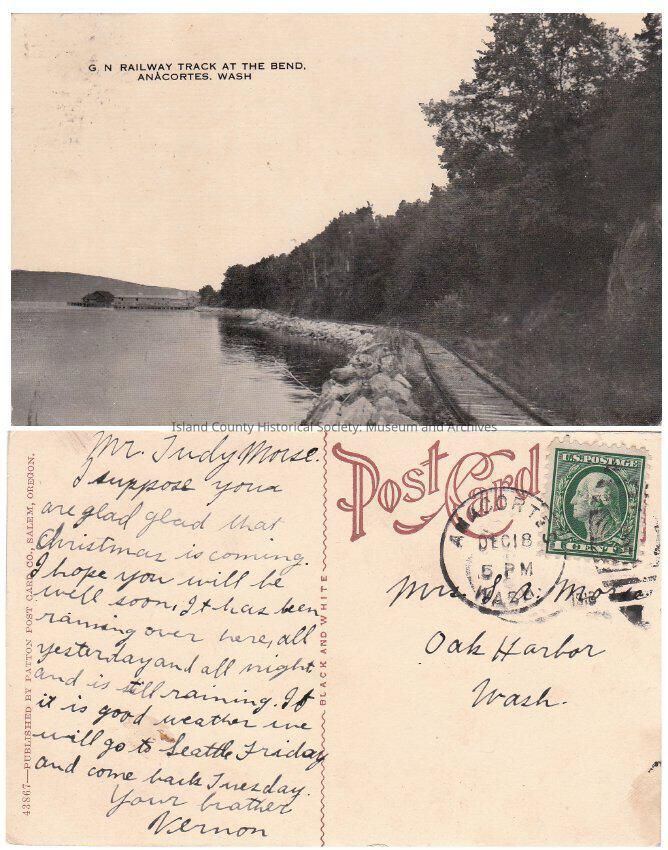 G. N RAILWAY TRACK AT THE BEND.
ANACORTES, WASH
Island County Historical Society: Museum and Archives
43867—PUBLISHED BY PATTON POST CARD CO., SALEM, OREGON.
Mr. Judy Morse.
I suppose your
are glad glad that
Christmas is coming.
I hope you will be
well soon, It has been
raining over here, all
yesterday and all night
and is still raining. If
it is good weather we
will go to Seattle Friday
and come back Tuesday.
Your brother
Vernon
BLACK AND WHITE
Post Card
U.S. POSTAGE
1 CENT 1
ANACORTES
DEC 18
5 PM
WASH
Mrs. S. A. Morse
Oak Harbor
Wash.